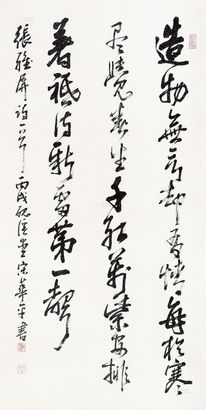 造物無言却有情每於寒
尽覺春生千紅萬紫安排
著祗待新雷第一聲
張維屏詩一首丙戌宋華平書